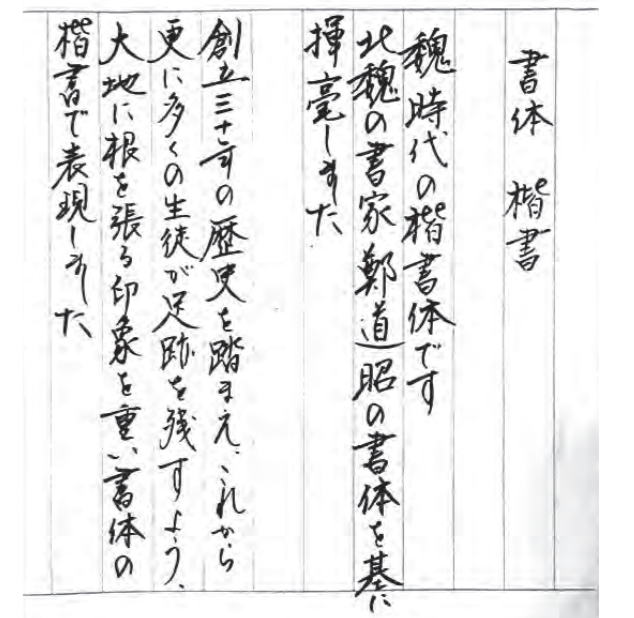 書体 楷書
魏時代の楷書体です
北魏の書家鄭道昭の書体を基に
揮毫しました
創立三十年の歴史を踏まえ、これから
更に多くの生徒が足跡を残すよう、
大地に根を張る印象を重い書体の
楷書で表現しました